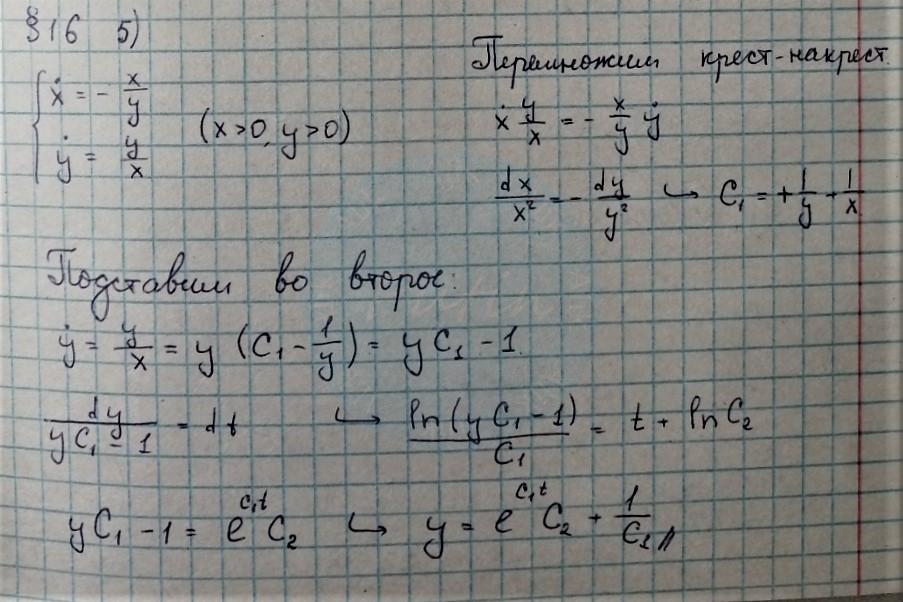 §16 5)
{ ẋ = - x/y
ẏ = y/x (x>0, y>0)
Перемножим крест-накрест.
ẋ y/x = - x/y ẏ
dx/x² = - dy/y² ↪ C₁ = + 1/y + 1/x
Подставим во второе:
ẏ = y/x = y (C₁ - 1/y) = y C₁ - 1.
dy/(y C₁ - 1) = dt ↪ ln(y C₁ - 1)/C₁ = t + ln C₂
y C₁ - 1 = e^(C₁t) C₂ ↪ y = e^(C₁t) C₂ + 1/C₁ //